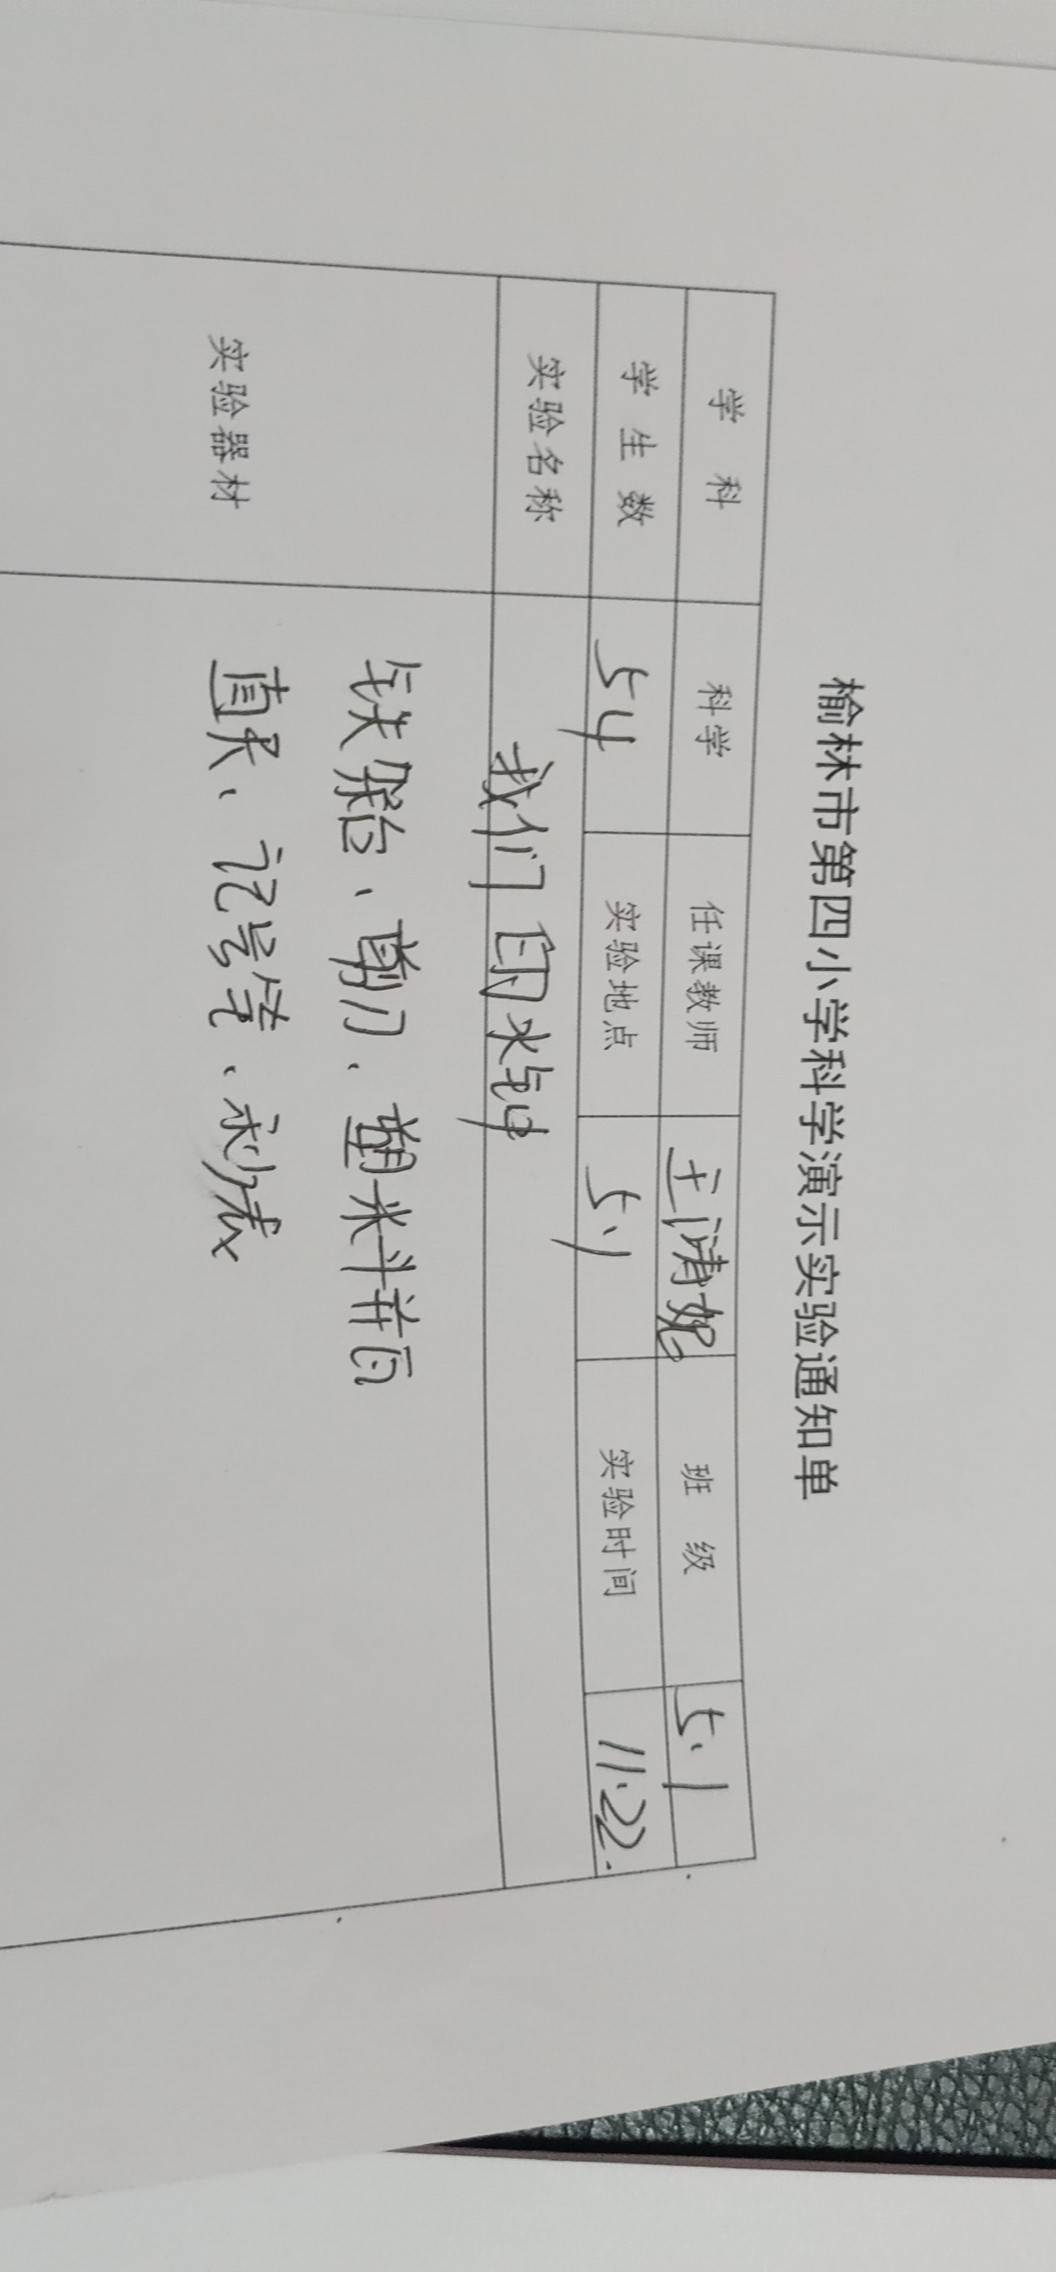 榆林市第四小学科学演示实验通知单
学 科 科学 任课教师 王 妮 班 级 5.1
学 生 数 54 实验地点 5.1 实验时间 11.22.
实验名称 我们的水钟
实验器材 铁架台、剪刀、塑料瓶
直尺、记号笔、秒表